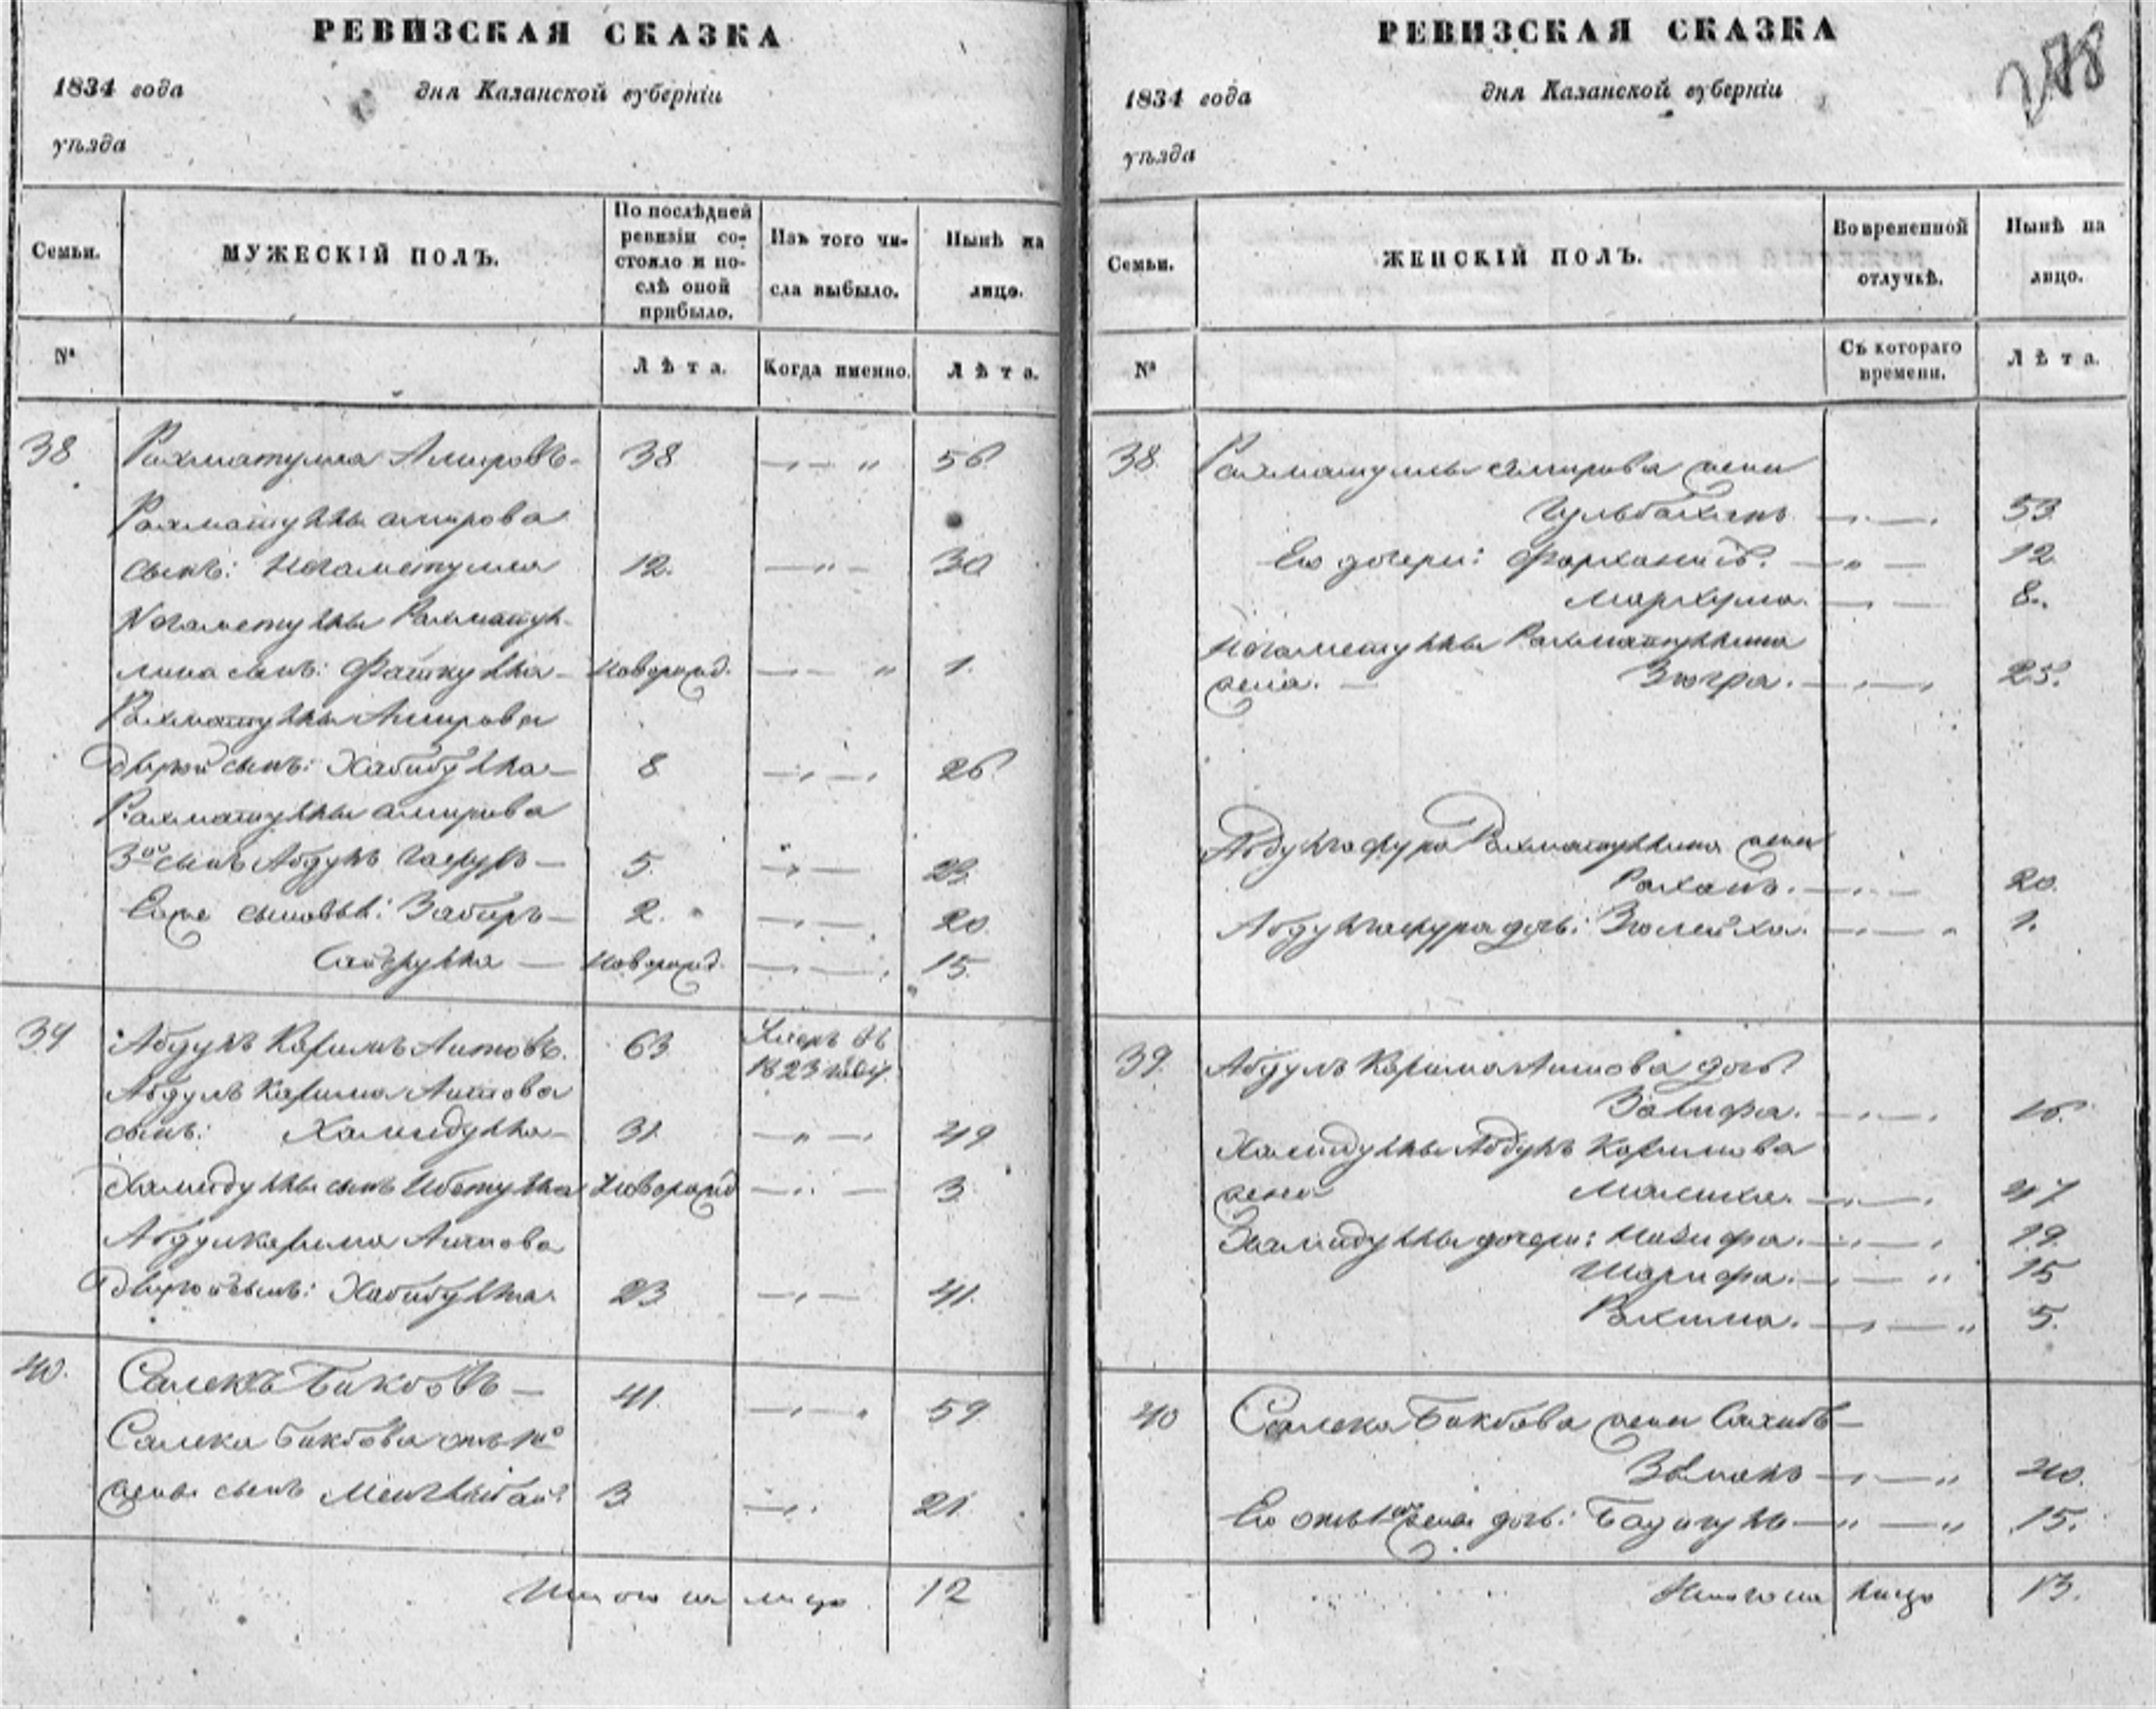 РЕВИЗСКАЯ СКАЗКА
1834 года дня Казанской губерніи
уѣзда
Семьи. МУЖЕСКІЙ ПОЛЪ. По послѣдней ревизіи состояло и послѣ оной прибыло. Изъ того числа выбыло. Нынѣ на лицо.
№ Лѣта. Когда именно. Лѣта.
38 Рахматулла Амировъ 38 56
Рахматуллы Амирова
сынъ: Негаметулла 12. 30
Негаметуллы Рахматул-
лина сынъ: Фаткулла новорожд. 1.
Рахматуллы Амирова
другой сынъ: Хабибулла 8 26
Рахматуллы Амирова
3й сынъ Абдулъ Гафуръ 5. 23
Еще сыновья: Забиръ 2. 20
новорожд. 15.
39 Абдулъ Каримъ Аитовъ. 63 Умеръ въ 1823 году
Абдулъ Карима Аитова
сынъ: Хамидулла 31 49
Хамидуллы сынъ новорожд 3
Абдулкарима Аитова
другой сынъ: Хабибулла 23 41.
40. Салекъ Бикбовъ 41. 59
Салека Бикбова отъ 1й
жены сынъ 3 21
Итого на лицо 12
РЕВИЗСКАЯ СКАЗКА
278
1834 года дня Казанской губерніи
уѣзда
Семьи. ЖЕНСКІЙ ПОЛЪ. Во временной отлучкѣ. Нынѣ на лицо.
№ Съ котораго времени. Лѣта.
38. Рахматуллы Амирова жена
53
Его дочери: 12
Мархума. 8.
Негаметуллы Рахматуллина
жена. Зюгра. 25.
Абдулгафура Рахматуллина жена
20.
Абдулгафура дочь: Зюлейха. 1.
39. Абдулъ Карима Аитова дочь
Зарифа. 16.
Хамидуллы Абдулъ Каримова
жена Малика. 47
Хамидуллы дочери: 19.
Шарифа. 15
Рахима. 5.
40 Салека Бикбова жена Сахибъ
Земалъ 40.
Его отъ 1й жены дочь: 15.
Итого на лицо 13.